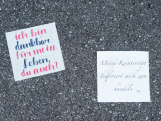 ich bin
dankbar
für mein
Leben,
du auch?
Meine Kreativität
inspiriert mich zum
handeln